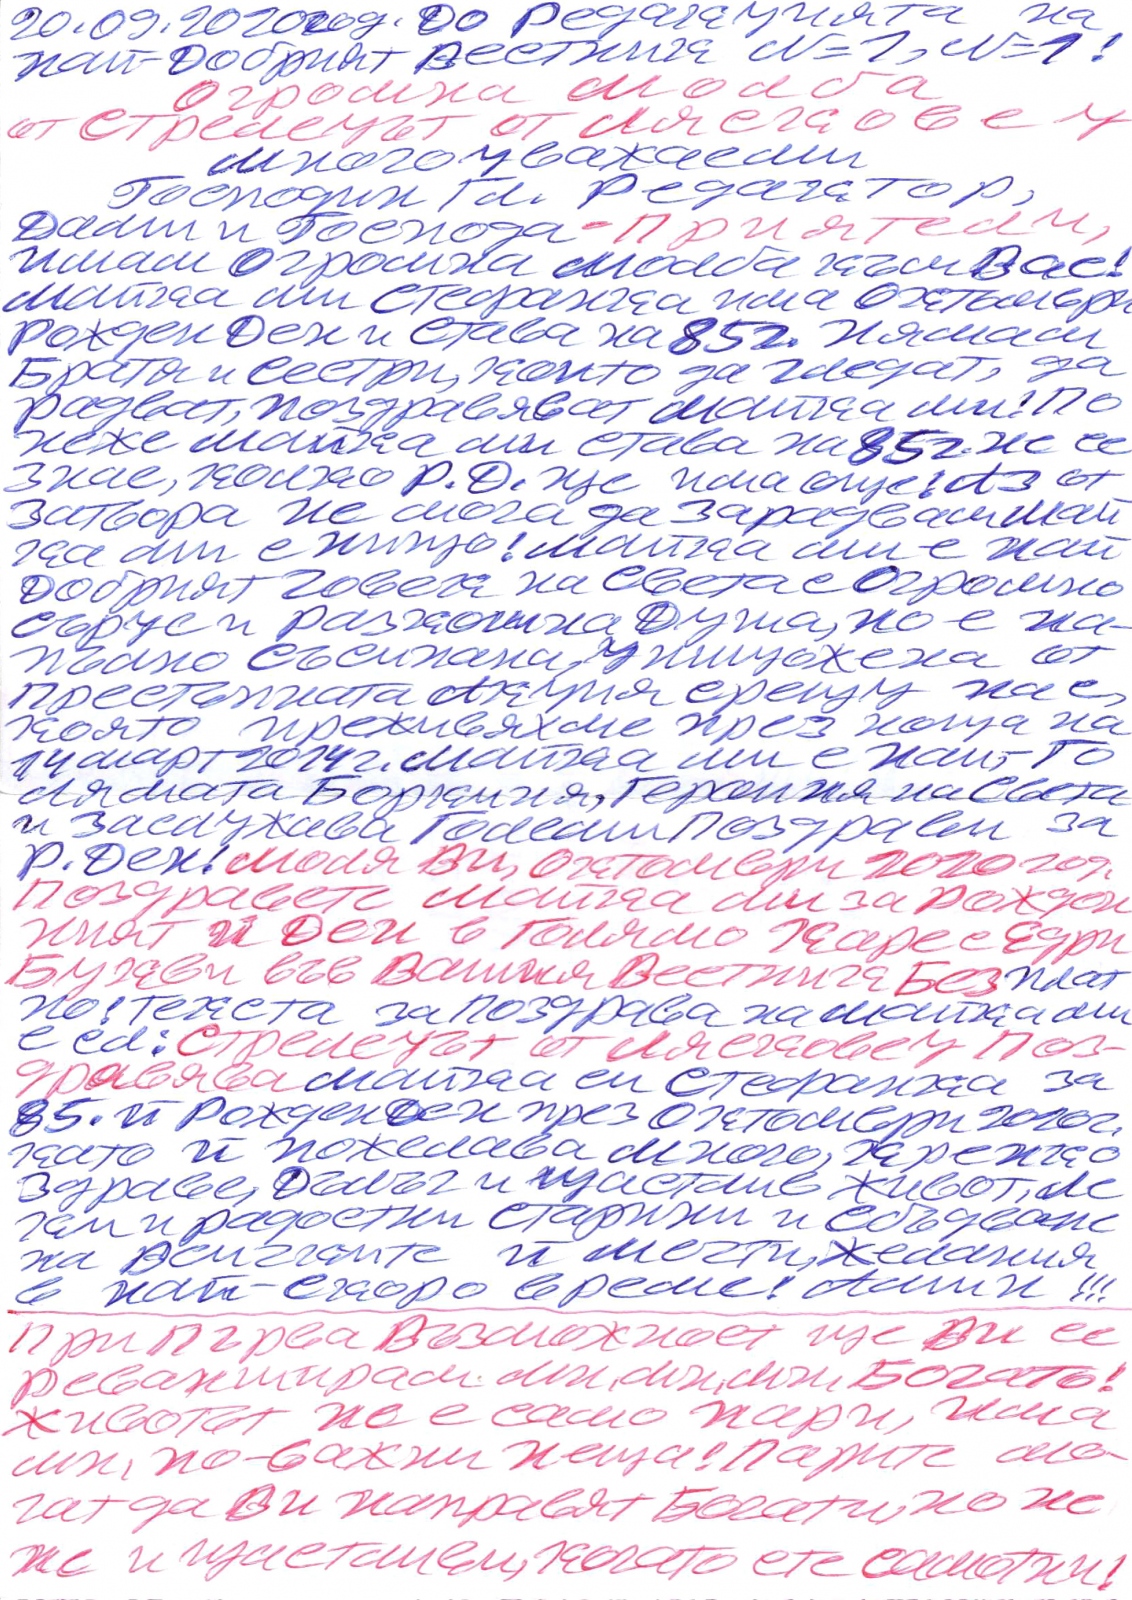 20.09.2020год. До Редакцията на
най-Добрият Вестник N=1, N=1!
Огромна Молба
от Стрелецът от Лясковец
Многоуважаеми
Господин Гл. Редактор,
Дами и Господа-Приятели,
имам Огромна Молба към Вас!
Майка ми Стефанка има Октомври
Рожден Ден и става на 85г. Нямам
Братя и Сестри, които да гледат, да
радват, поздравяват Майка ми! По
неже Майка ми става на 85г. не се
знае, колко Р.Д. ще има още! Аз от
Затвора не мога да Зарадвам Май
ка ми с нищо! Майка ми е най
Добрият Човек на Света с Огромно
сърце и разкошна Душа, но е на-
пълно Съсипана, Унищожена от
престъпната Акция срещу нас,
която преживяхме през нощта на
14 март 2014г. Майка ми е най-Го
лямата Боркиня, Героиня на Света
и Заслужава Големи Поздрави за
Р. Ден! Моля Ви, Октомври 2020год.
Поздравете Майка ми за Рожден
ният й Ден в Голямо Каре с Едри
Букви във Вашия Вестник Безплат
но! Текста за Поздрава на Майка ми
е сл: Стрелецът от Лясковец Поз-
дравява Майка си Стефанка за
85.й Рожден Ден през Октомври 2020г.
като й пожелава Много, Крепко
Здраве, Дълъг и щастлив живот, ле
ки и радостни старини и сбъдване
на Всичките й мечти, желания
в най-скоро време! Амин!!!
При Първа Възможност ще Ви се
реванширам мн,мн,мн, Богато!
Животът не е само пари, има
мн, по-важни неща! Парите мо-
гат да Ви направят Богати, но не
не и щастливи, когато сте самотни!